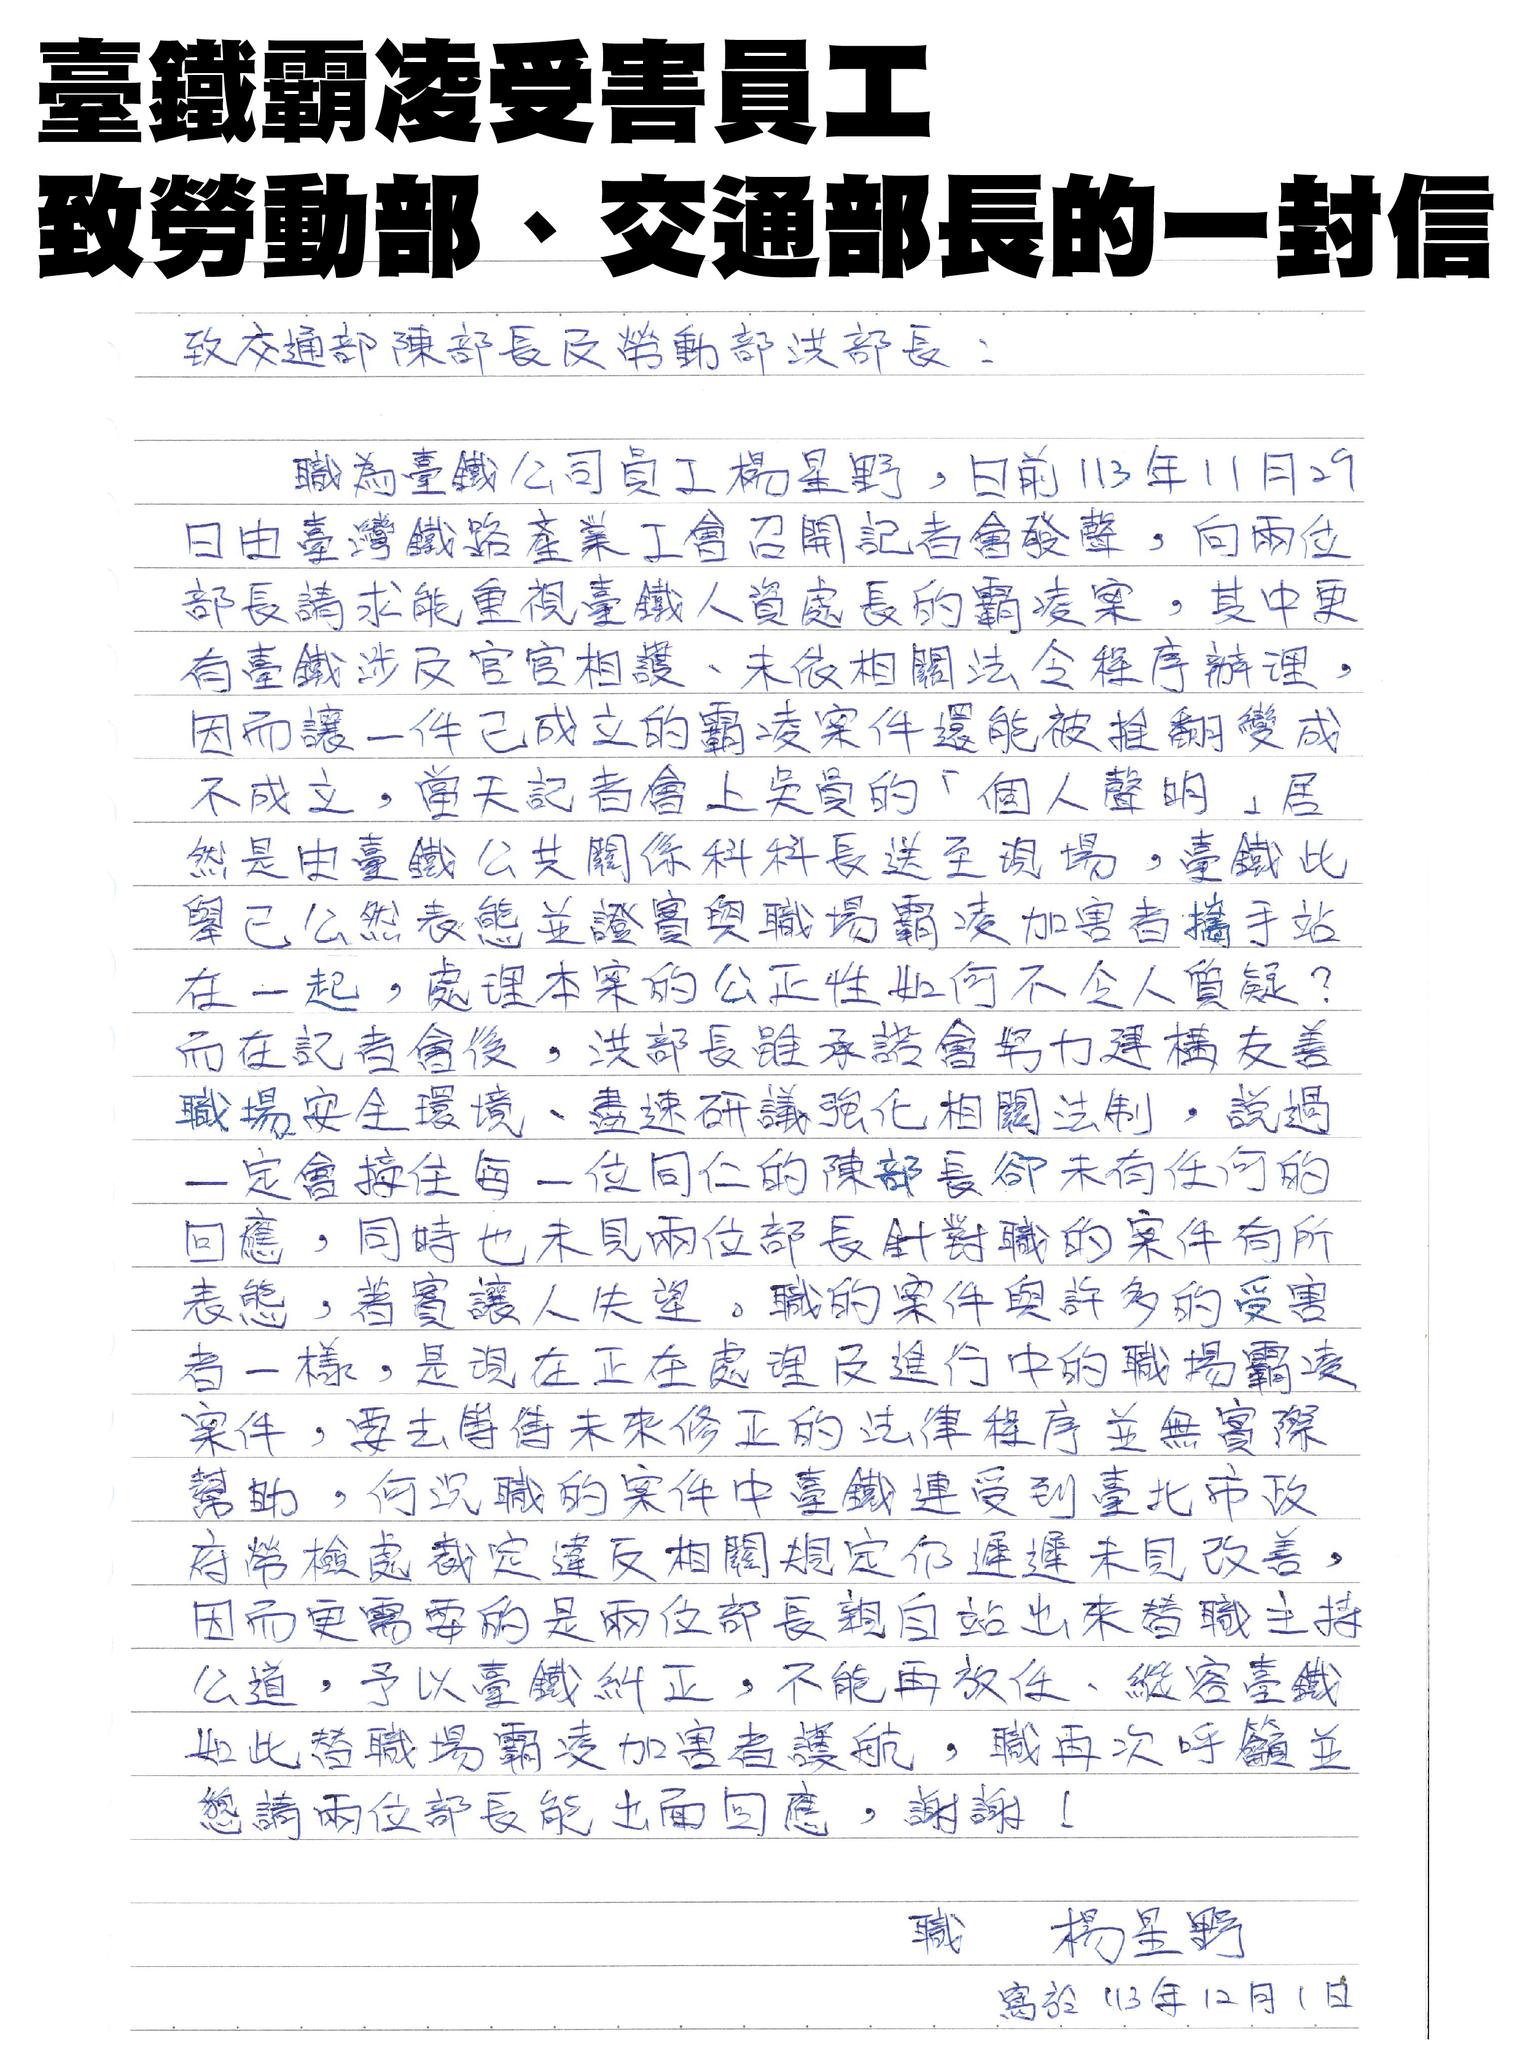 臺鐵霸凌受害員工
致勞動部、交通部長的一封信
致交通部陳部長及勞動部洪部長：
職為臺鐵公司員工楊星野，日前113年11月29
日由臺灣鐵路產業工會召開記者會發聲，向兩位
部長請求能重視臺鐵人資處長的霸凌案，其中更
有臺鐵涉及官官相護、未依相關法令程序辦理，
因而讓一件已成立的霸凌案件還能被推翻變成
不成立，當天記者會上吳員的「個人聲明」居
然是由臺鐵公共關係科科長送至現場，臺鐵此
舉已公然表態並證實與職場霸凌加害者攜手站
在一起，處理本案的公正性如何不令人質疑？
而在記者會後，洪部長雖承諾會努力建構友善
職場安全環境、盡速研議強化相關法制，說過
一定會接住每一位同仁的陳部長卻未有任何的
回應，同時也未見兩位部長針對職的案件有所
表態，著實讓人失望。職的案件與許多的受害
者一樣，是現在正在處理及進行中的職場霸凌
案件，要去等待未來修正的法律程序並無實際
幫助，何況職的案件中臺鐵連受到臺北市政
府勞檢處裁定違反相關規定仍遲遲未見改善，
因而更需要的是兩位部長親自站出來替職主持
公道，予以臺鐵糾正，不能再放任、縱容臺鐵
如此替職場霸凌加害者護航，職再次呼籲並
懇請兩位部長能出面回應，謝謝！
職　楊星野
寫於113年12月1日